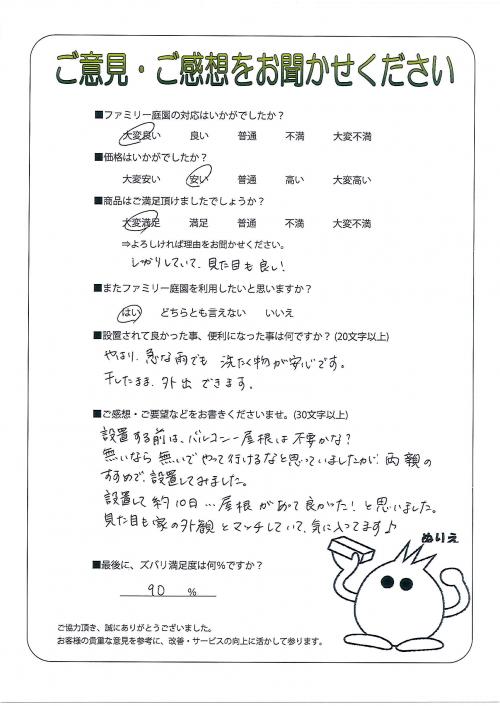 ご意見・ご感想をお聞かせください
■ファミリー庭園の対応はいかがでしたか？
大変良い 良い 普通 不満 大変不満
■価格はいかがでしたか？
大変安い 安い 普通 高い 大変高い
■商品はご満足頂けましたでしょうか？
大変満足 満足 普通 不満 大変不満
⇒よろしければ理由をお聞かせください。
しっかりしていて、見た目も良い！
■またファミリー庭園を利用したいと思いますか？
はい どちらとも言えない いいえ
■設置されて良かった事、便利になった事は何ですか？(20文字以上)
やはり、急な雨でも 洗たく物が安心です。
干したまま、外出できます。
■ご感想・ご要望などをお書きくださいませ。(30文字以上)
設置する前は、バルコニー屋根は不要かな？
無いなら無いでやって行けるなと思っていましたが、両親の
すすめで、設置してみました。
設置して約10日…屋根があって良かった！と思いました。
見た目も家の外観とマッチしていて、気に入ってます♪
ぬりえ
■最後に、ズバリ満足度は何％ですか？
90 %
ご協力頂き、誠にありがとうございました。
お客様の貴重な意見を参考に、改善・サービスの向上に活かして参ります。